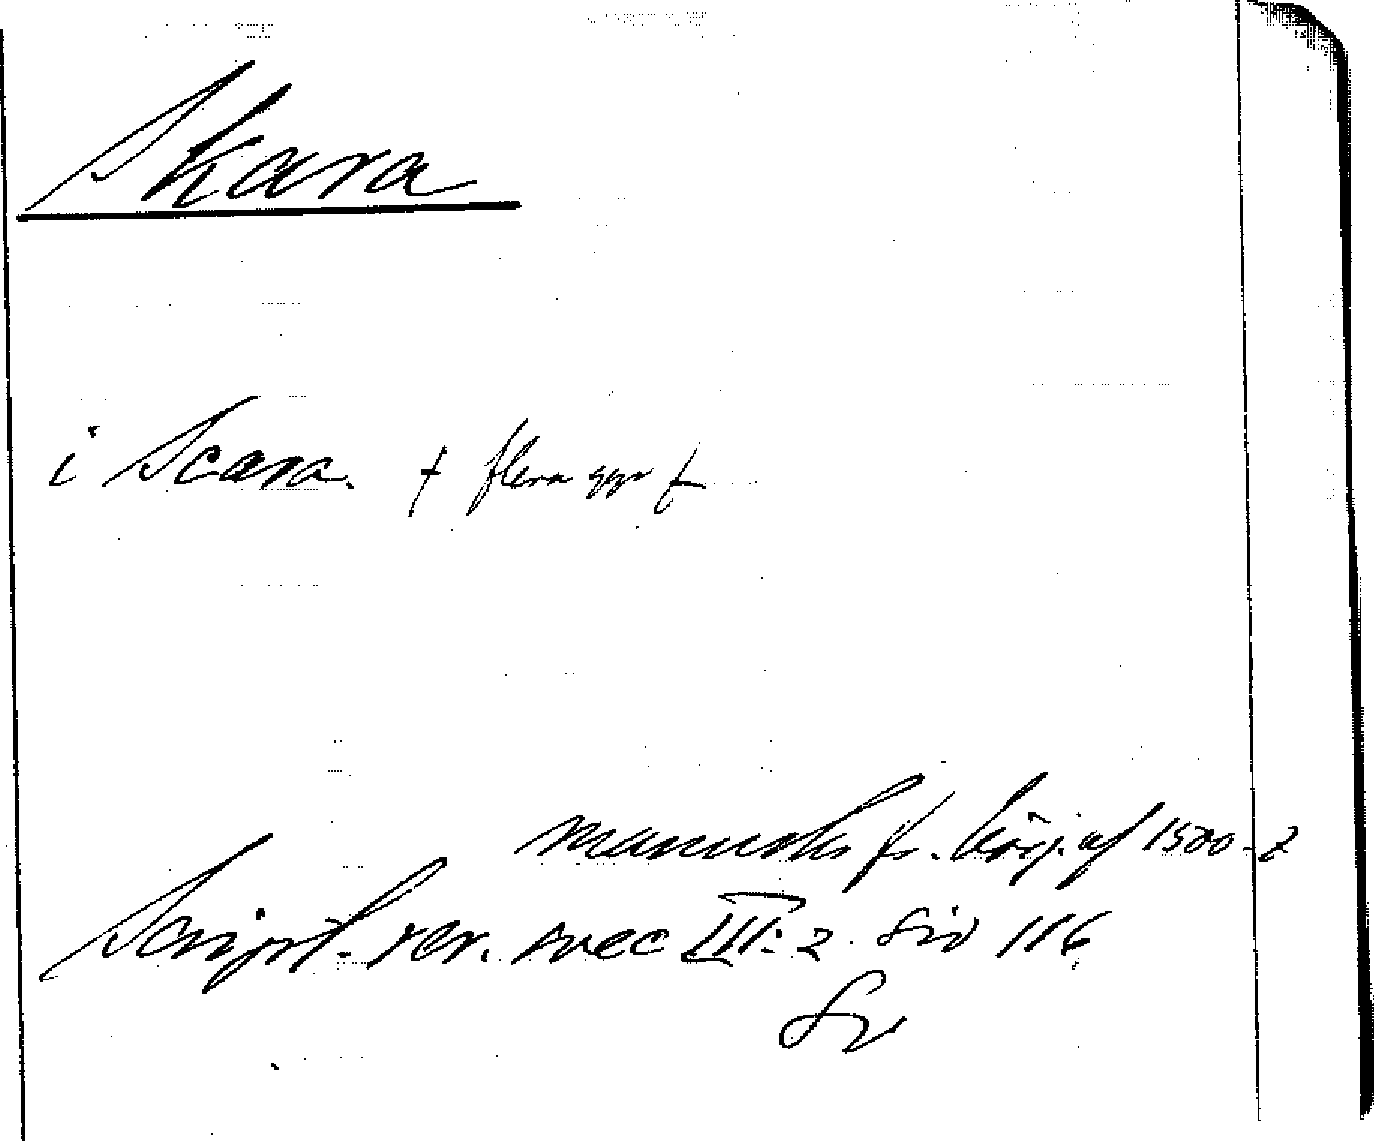 Skara
i Scara. + flera ggr +
manuskr fr. börj. af 1500-t
Script. rer. svec III:2. sid 116
Sv